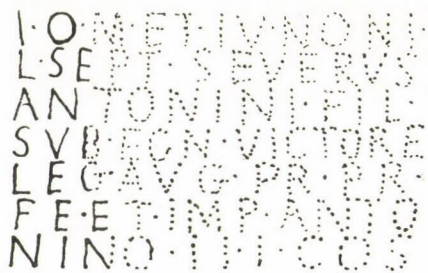 I·O·M·ET·IVNONI·
L·SEPT·SEVERVS
ANTONINI·FIL·
SVB·EGN·VICTORE
LEG·AVG·PR·PR·
FE·ET·IMP·ANTO
NINO·III·COS